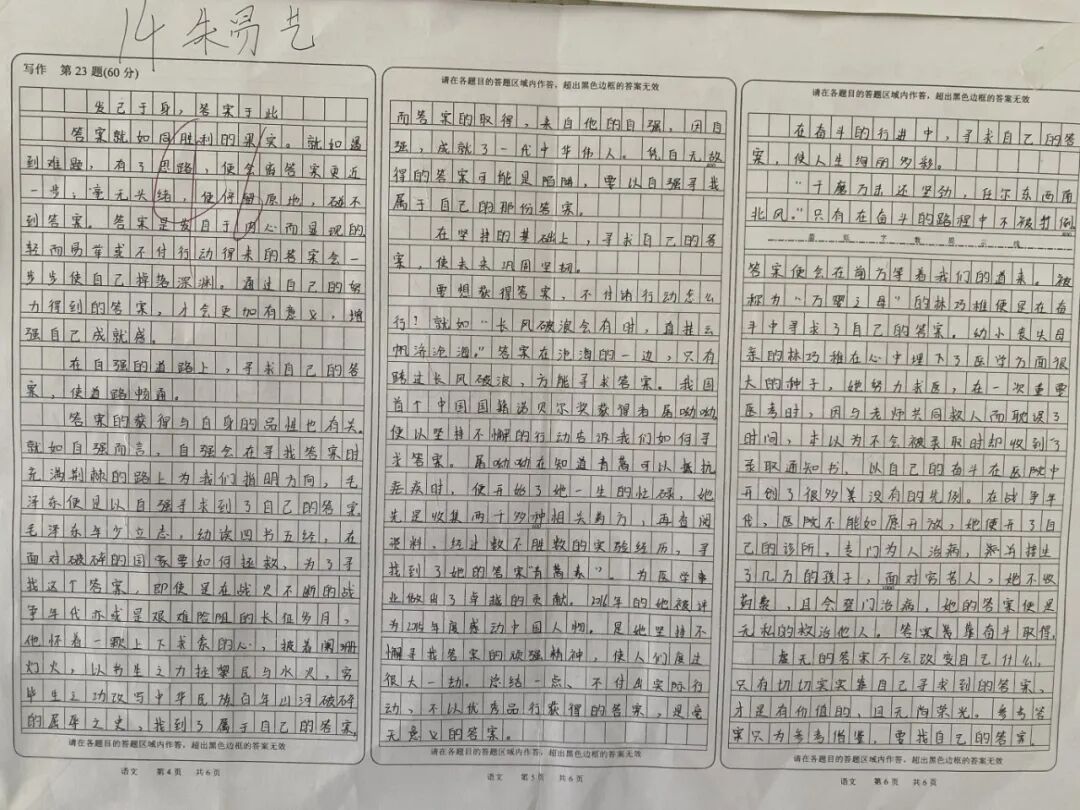 14 朱易艺
写作 第23题(60分)
发己于身，答案于此
答案就如同胜利的果实。就如遇
到难题，有了思路，便会离答案更近
一步；毫无头绪，便停留原地，碰不
到答案。答案是发自于内心而显现的，
轻而易举或不付行动得来的答案会一
步步使自己掉落深渊。通过自己的努
力得到的答案，才会更加有意义，增
强自己成就感。
在自强的道路上，寻求自己的答
案，使道路畅通。
答案的获得与自身的品性也有关。
就如自强而言，自强会在寻找答案时
充满荆棘的路上为我们指明方向，毛
泽东便是以自强寻求到了自己的答案
毛泽东年少立志，幼读四书五经，在
面对破碎的国家要如何拯救，为了寻
找这个答案，即使是在战火不断的战
争年代亦或是艰难险阻的长征岁月，
他怀着一颗上下求索的心，披着阑珊
灯火，以书生之力拯黎民与水火，穷
毕生之功改写中华民族百年山河破碎
的屈辱之史，找到了属于自己的答案，
请在各题目的答题区域内作答，超出黑色边框的答案无效
语文 第4页 共6页
请在各题目的答题区域内作答，超出黑色边框的答案无效
而答案的取得，来自他的自强，因自
强，成就了一代中华伟人。凭白无故
得的答案可能是陷阱，要以自强寻找
属于自己的那份答案。
在坚持的基础上，寻求自己的答
案，使未来巩固坚韧。
要想获得答案，不付诸行动怎么
行！就如“长风破浪会有时，直挂云
帆济沧海。”答案在沧海的一边，只有
跨过长风破浪，方能寻求答案。我国
首个中国国籍诺贝尔奖获得者屠呦呦，
便以坚持不懈的行动告诉我们如何寻
求答案。屠呦呦在知道青蒿可以抵抗
疟疾时，便开始了她一生的忙碌，她
先是收集两千多种相关药方，再查阅
资料，经过数不胜数的实验经历，寻
找到了她的答案“青蒿素”。为医学事
业做出了卓越的贡献。2016年的她被评
为2015年度感动中国人物。是她坚持不
懈寻找答案的顽强精神，使人们度过
很大一劫。总结一点、不付出实际行
动，不以优秀品行获得的答案，是毫
无意义的答案。
请在各题目的答题区域内作答，超出黑色边框的答案无效
语文 第5页 共6页
请在各题目的答题区域内作答，超出黑色边框的答案无效
在奋斗的行进中，寻求自己的答
案，使人生绚丽多彩。
“千磨万击还坚劲，任尔东西南
北风。”只有在奋斗的路程中不被打倒，
答案便会在前方等着我们的道来。被
称为“万婴之母”的林巧稚便是在奋
斗中寻求了自己的答案。幼小丧失母
亲的林巧稚在心中埋下了医学方面很
大的种子，她努力求医，在一次重要
医考时，因与老师共同救人而耽误了
时间，本以为不会被录取时却收到了
录取通知书，以自己的奋斗在医院中
开创了很多其没有的先例。在战争年
代，医院不能如愿开放，她便开了自
己的诊所，专门为人治病，
了几万的孩子，面对穷苦人，她不收
药费，且会登门治病，她的答案便是
无私的救治他人。答案需靠奋斗取得，
虚无的答案不会改变自己什么，
只有切切实实靠自己寻求到的答案，
才是有价值的，且无尚荣光。参考答
案只为参考借鉴，要找自己的答案。
请在各题目的答题区域内作答，超出黑色边框的答案无效
语文 第6页 共6页